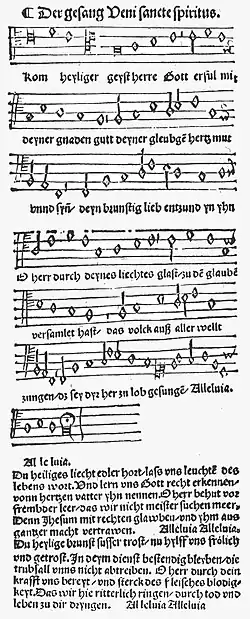 ¶ Der gesang Veni sancte spiritus.
Kom heyliger geyst herre Gott erful mit
deyner gnaden gutt deyner gleubgē hertz mut
vnnd syn̄ deyn brunstig lieb entzund yn yhn
O herr durch deynes liechtes glast zu dē glaubē
versamlet hast das volck auß aller wellt
zungen dz sey dyr her zu lob gesungē Alleluia.
Al le luia.
Du heiliges liecht edler hort lass vns leuchtē des
lebens wort. Vnd lern vns Gott recht erkennen
vonn hertzen vatter yhn nennen. O herr behut vor
frembder leer das wir nicht meister suchen meer
Denn Jhesum mit rechten glawben vnd yhm aus
gantzer macht vertrawen. Alleluia Alleluia.
Du heylige brunst susser trost nu hylff vns frölich
vnd getrost. In deym dienst bestendig bleyben die
trubsall vnns nicht abtreiben. O herr durch dein
krafft vns bereyt vnd sterck des fleisches blodig-
keyt. Das wir hie ritterlich ringen durch tod vnd
leben zu dir dryngen. Al leluia Alleluia